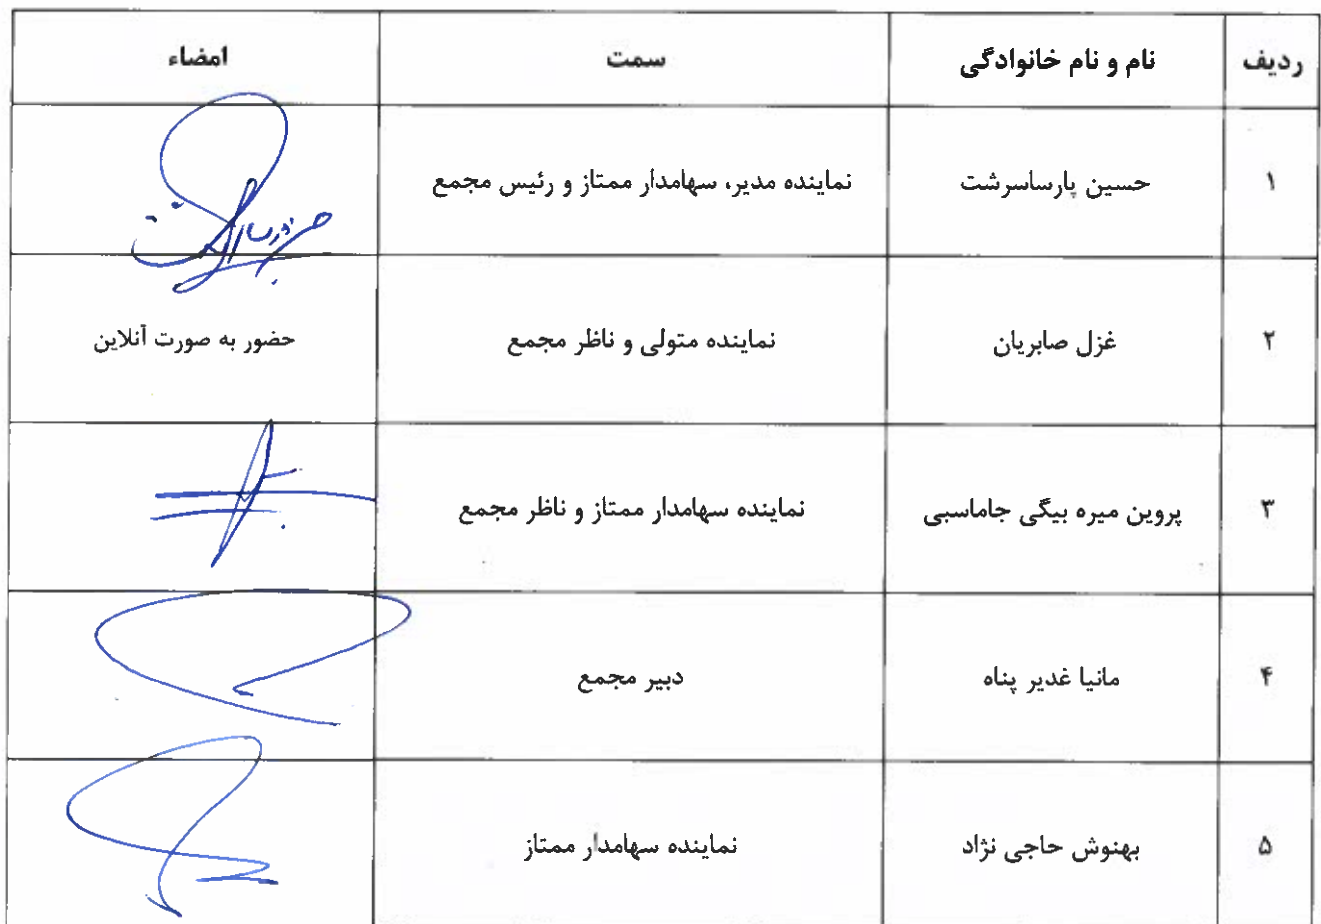 ردیف نام و نام خانوادگی سمت امضاء
۱ حسین پارساسرشت نماینده مدیر، سهامدار ممتاز و رئیس مجمع
۲ غزل صابریان نماینده متولی و ناظر مجمع حضور به صورت آنلاین
۳ پروین میره بیگی جاماسبی نماینده سهامدار ممتاز و ناظر مجمع
۴ مانیا غدیر پناه دبیر مجمع
۵ بهنوش حاجی نژاد نماینده سهامدار ممتاز